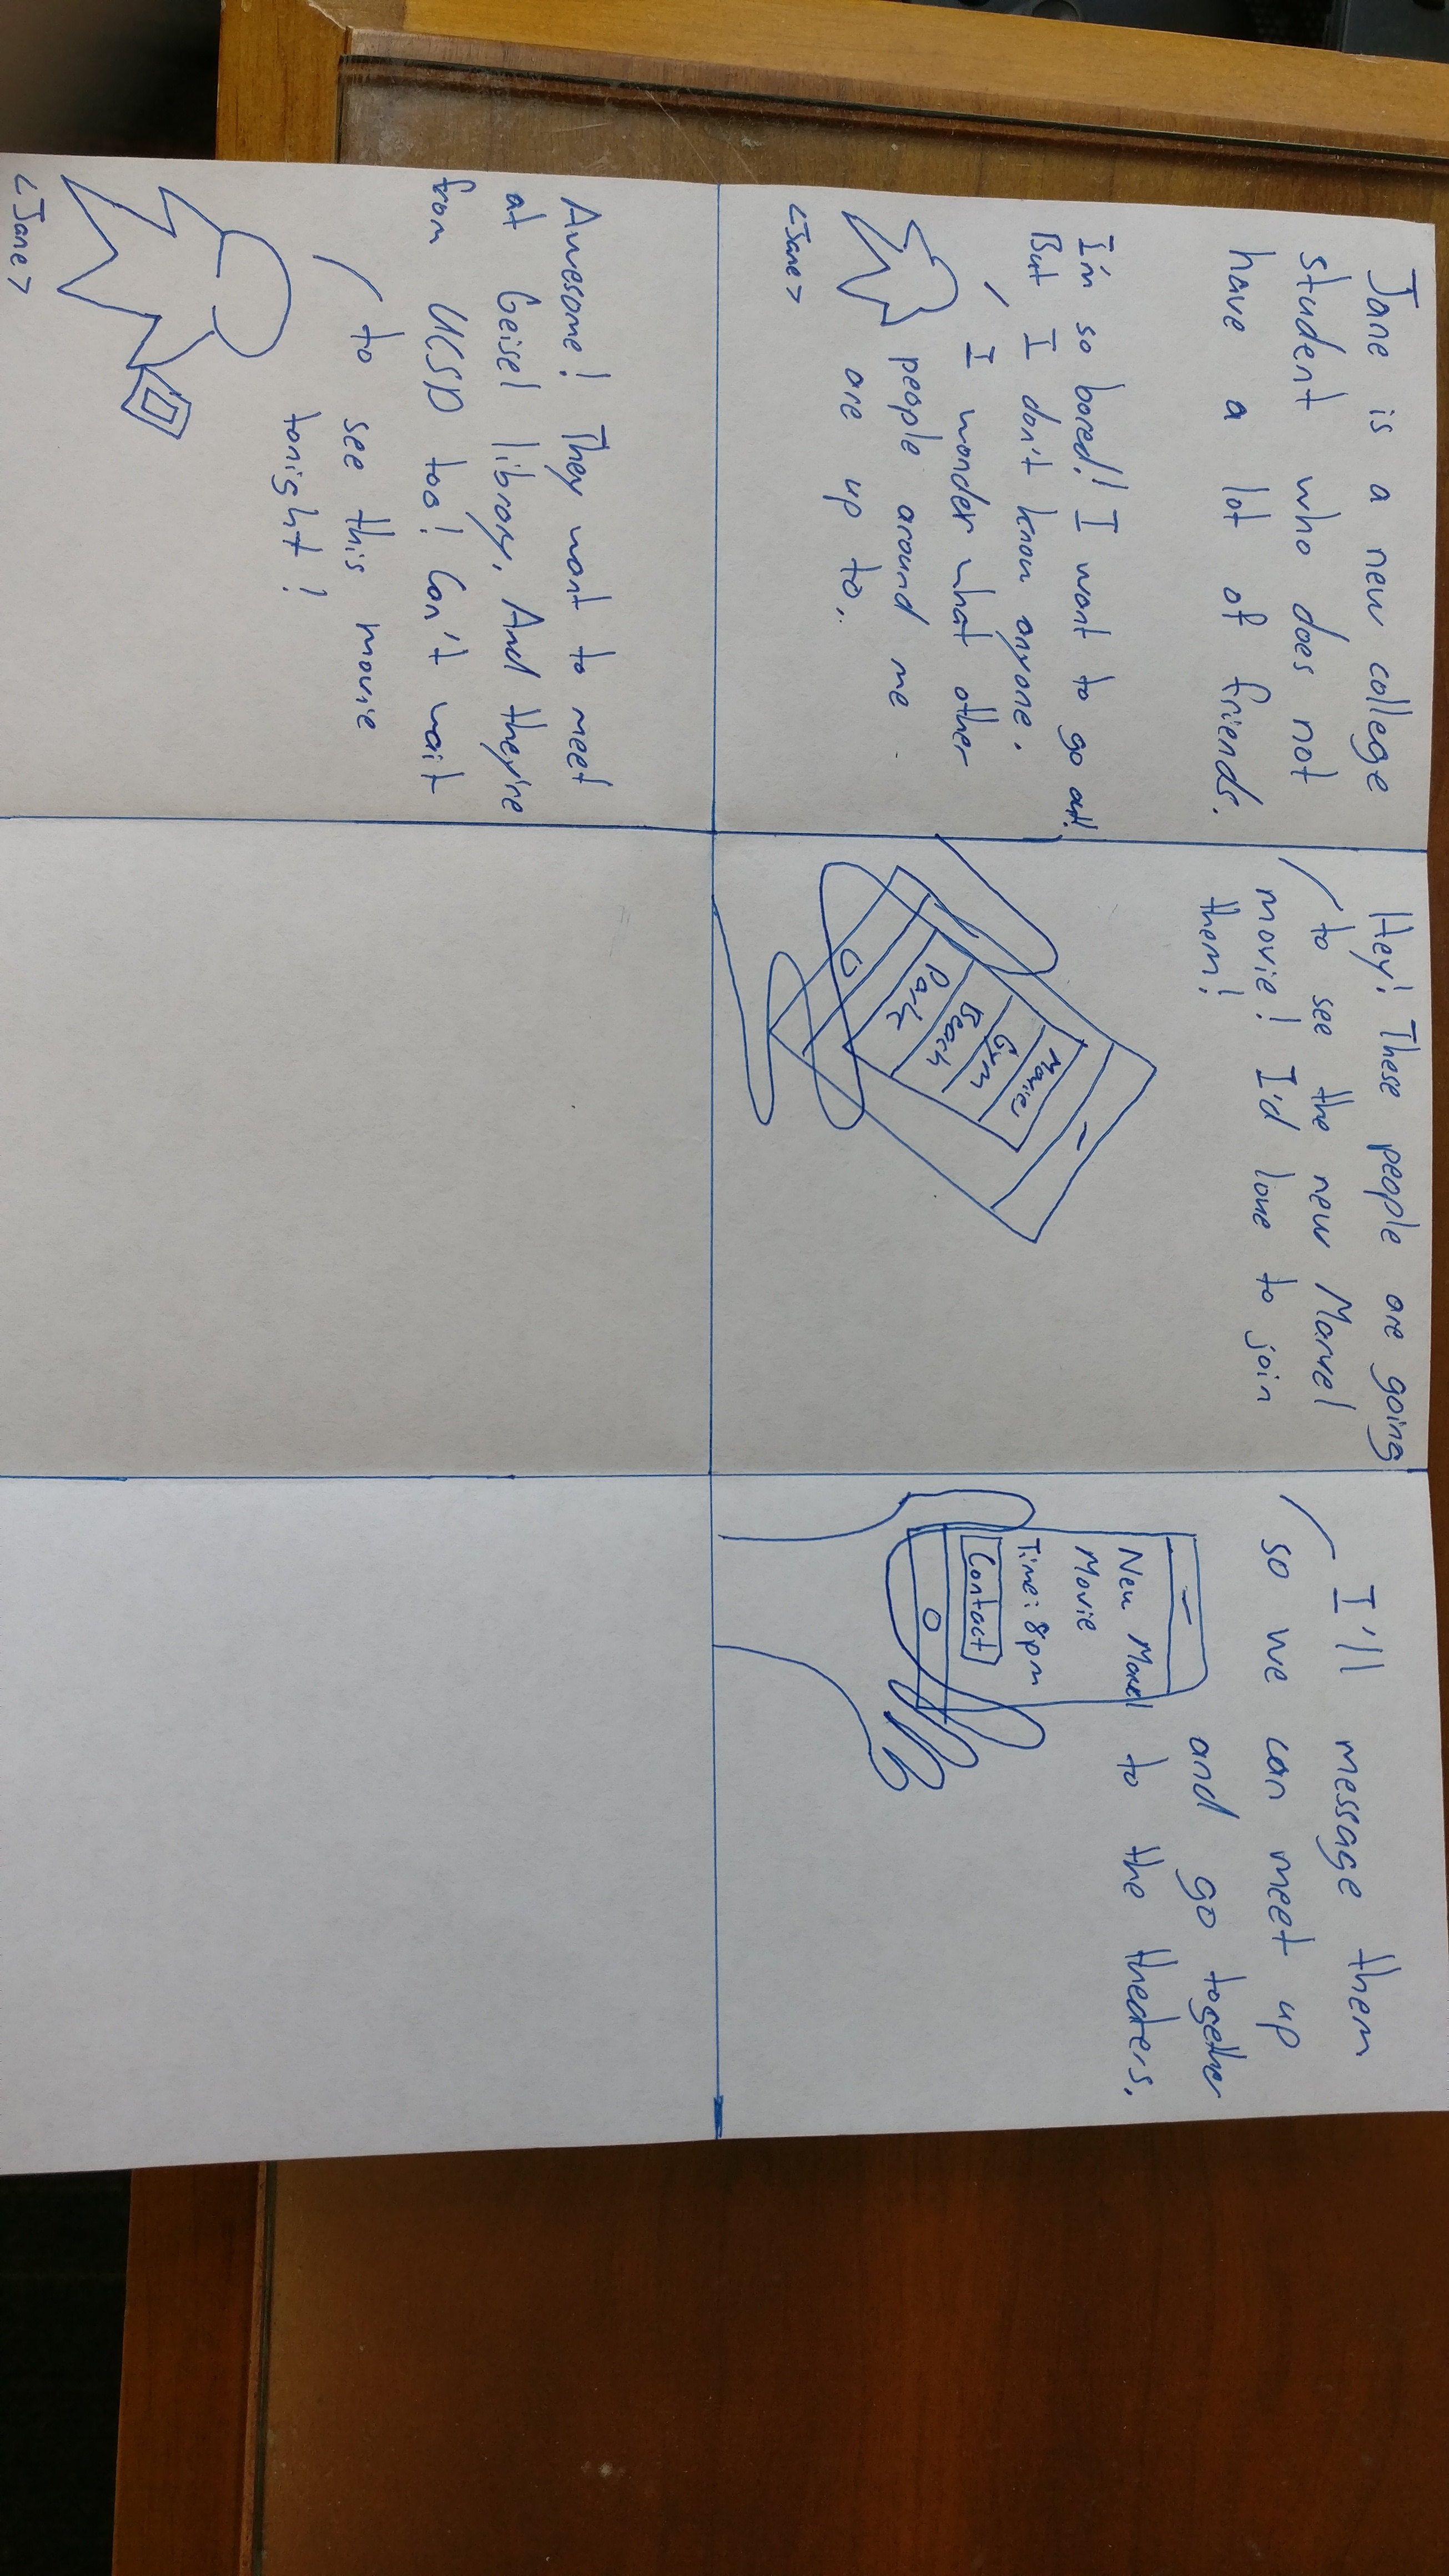 Jane is a new college
student who does not
have a lot of friends.
I'm so bored! I want to go out!
But I don't know anyone.
I wonder what other
people around me
are up to..
<Jane>
Hey! These people are going
to see the new Marvel
movie! I'd love to join
them!
Movies
Gym
Beach
Park
I'll message them
so we can meet up
and go together
to the theaters.
New Marvel
Movie
Time: 8pm
Contact
Awesome! They want to meet
at Geisel library. And they're
from UCSD too! Can't wait
to see this movie
tonight!
<Jane>